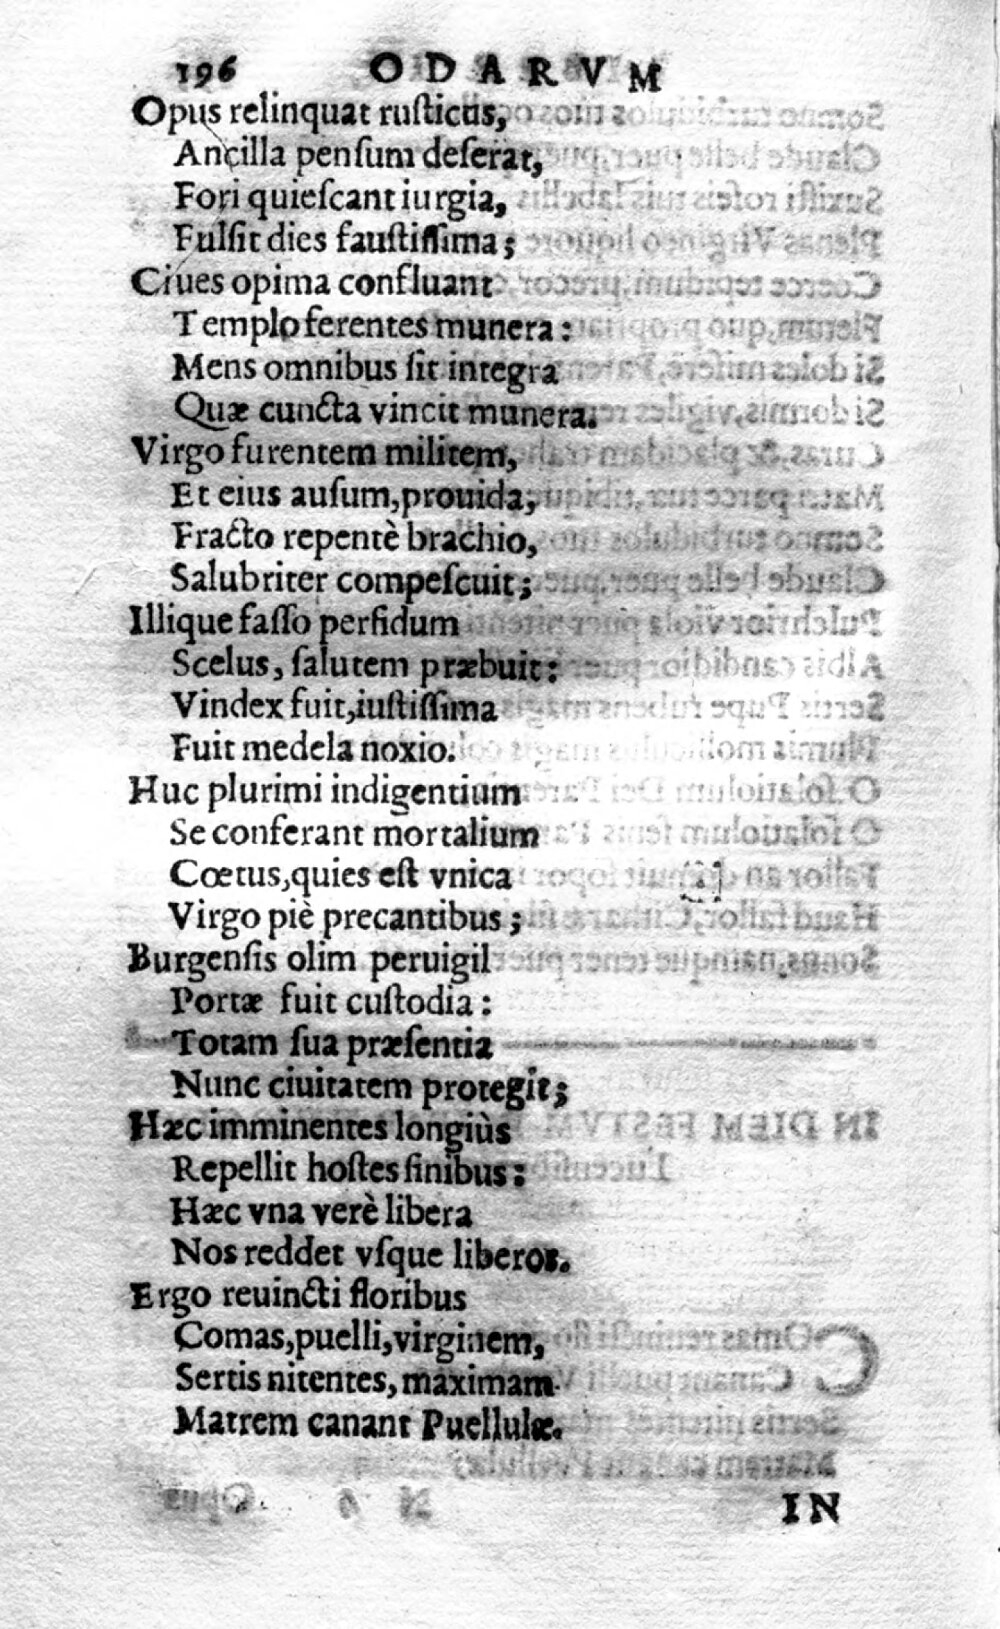 196 ODARVM
Opus relinquat ruſticus,
Ancilla penſum deſerat,
Fori quieſcant iurgia,
Fulſit dies fauſtiſſima;
Ciues opima confluant
Templo ferentes munera:
Mens omnibus ſit integra
Quæ cuncta vincit munera.
Virgo furentem militem,
Et eius auſum, prouida,
Fracto repentè brachio,
Salubriter compeſcuit;
Illique faſſo perfidum
Scelus, ſalutem præbuit:
Vindex fuit, iuſtiſſima
Fuit medela noxio.
Huc plurimi indigentium
Se conferant mortalium
Cœtus, quies eſt vnica
Virgo piè precantibus;
Burgenſis olim peruigil
Portæ fuit cuſtodia:
Totam ſua præſentia
Nunc ciuitatem protegit;
Hæc imminentes longiùs
Repellit hoſtes finibus:
Hæc vna verè libera
Nos reddet vſque liberos.
Ergo reuincti floribus
Comas, puelli, virginem,
Sertis nitentes, maximam
Matrem canant Puellulæ.
IN